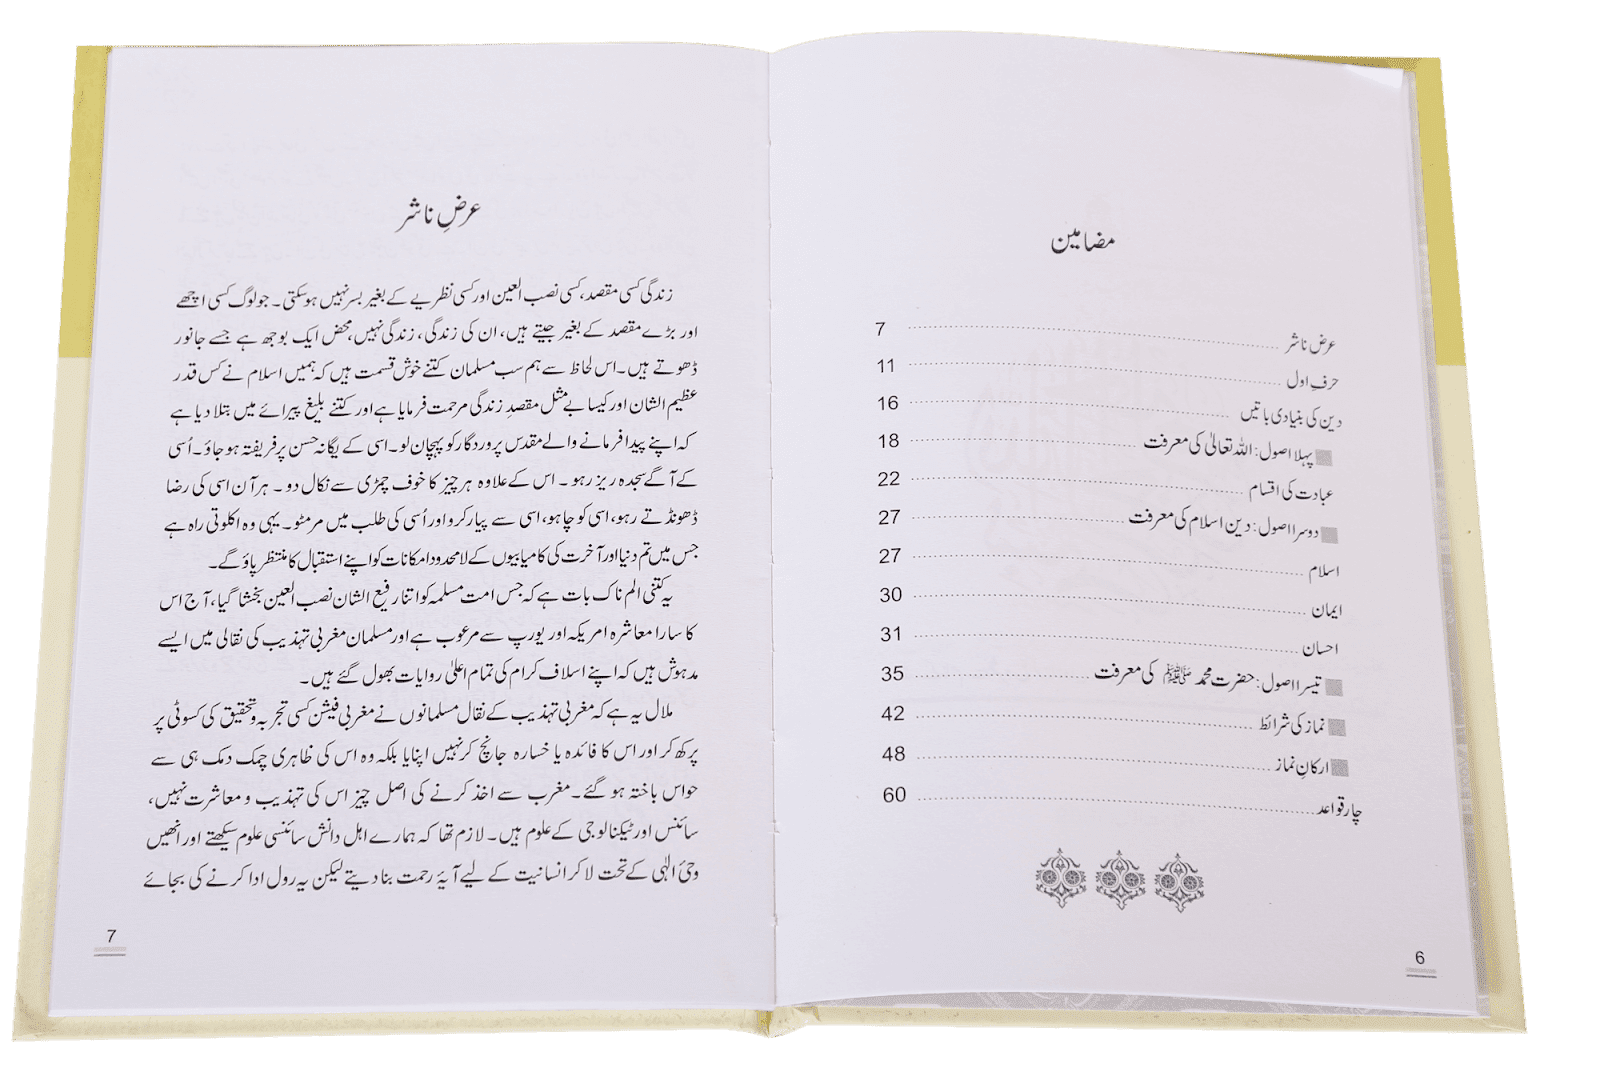 مضامین
عرض ناشر 7
حرفِ اول 11
دین کی بنیادی باتیں 16
پہلا اصول: اللہ تعالیٰ کی معرفت 18
عبادت کی اقسام 22
دوسرا اصول: دین اسلام کی معرفت 27
اسلام 27
ایمان 30
احسان 31
تیسرا اصول: حضرت محمد ﷺ کی معرفت 35
نماز کی شرائط 42
ارکانِ نماز 48
چار قواعد 60
6
عرضِ ناشر
زندگی کسی مقصد، کسی نصب العین اور کسی نظریے کے بغیر بسر نہیں ہوسکتی۔ جو لوگ کسی اچھے
اور بڑے مقصد کے بغیر جیتے ہیں، ان کی زندگی، زندگی نہیں، محض ایک بوجھ ہے جسے جانور
ڈھوتے ہیں۔ اس لحاظ سے ہم سب مسلمان کتنے خوش قسمت ہیں کہ ہمیں اسلام نے کس قدر
عظیم الشان اور کیسا بے مثل مقصدِ زندگی مرحمت فرمایا ہے اور کتنے بلیغ پیرائے میں بتلا دیا ہے
کہ اپنے پیدا فرمانے والے مقدس پروردگار کو پہچان لو۔ اسی کے یگانہ حسن پر فریفتہ ہو جاؤ۔ اُسی
کے آگے سجدہ ریز رہو۔ اس کے علاوہ ہر چیز کا خوف چمڑی سے نکال دو۔ ہر آن اسی کی رضا
ڈھونڈتے رہو، اسی کو چاہو، اسی سے پیار کرو اور اُسی کی طلب میں مرمٹو۔ یہی وہ اکلوتی راہ ہے
جس میں تم دنیا اور آخرت کی کامیابیوں کے لامحدود امکانات کو اپنے استقبال کا منتظر پاؤ گے۔
یہ کتنی الم ناک بات ہے کہ جس امت مسلمہ کو اتنا رفیع الشان نصب العین بخشا گیا، آج اس
کا سارا معاشرہ امریکہ اور یورپ سے مرعوب ہے اور مسلمان مغربی تہذیب کی نقالی میں ایسے
مدہوش ہیں کہ اپنے اسلاف کرام کی تمام اعلیٰ روایات بھول گئے ہیں۔
ملال یہ ہے کہ مغربی تہذیب کے نقال مسلمانوں نے مغربی فیشن کسی تجربہ و تحقیق کی کسوٹی پر
پرکھ کر اور اس کا فائدہ یا خسارہ جانچ کر نہیں اپنایا بلکہ وہ اس کی ظاہری چمک دمک ہی سے
حواس باختہ ہو گئے۔ مغرب سے اخذ کرنے کی اصل چیز اس کی تہذیب و معاشرت نہیں،
سائنس اور ٹیکنالوجی کے علوم ہیں۔ لازم تھا کہ ہمارے اہل دانش سائنسی علوم سیکھتے اور انھیں
وحیٔ الٰہی کے تحت لاکر انسانیت کے لیے آیۂ رحمت بنا دیتے لیکن یہ رول ادا کرنے کی بجائے
7